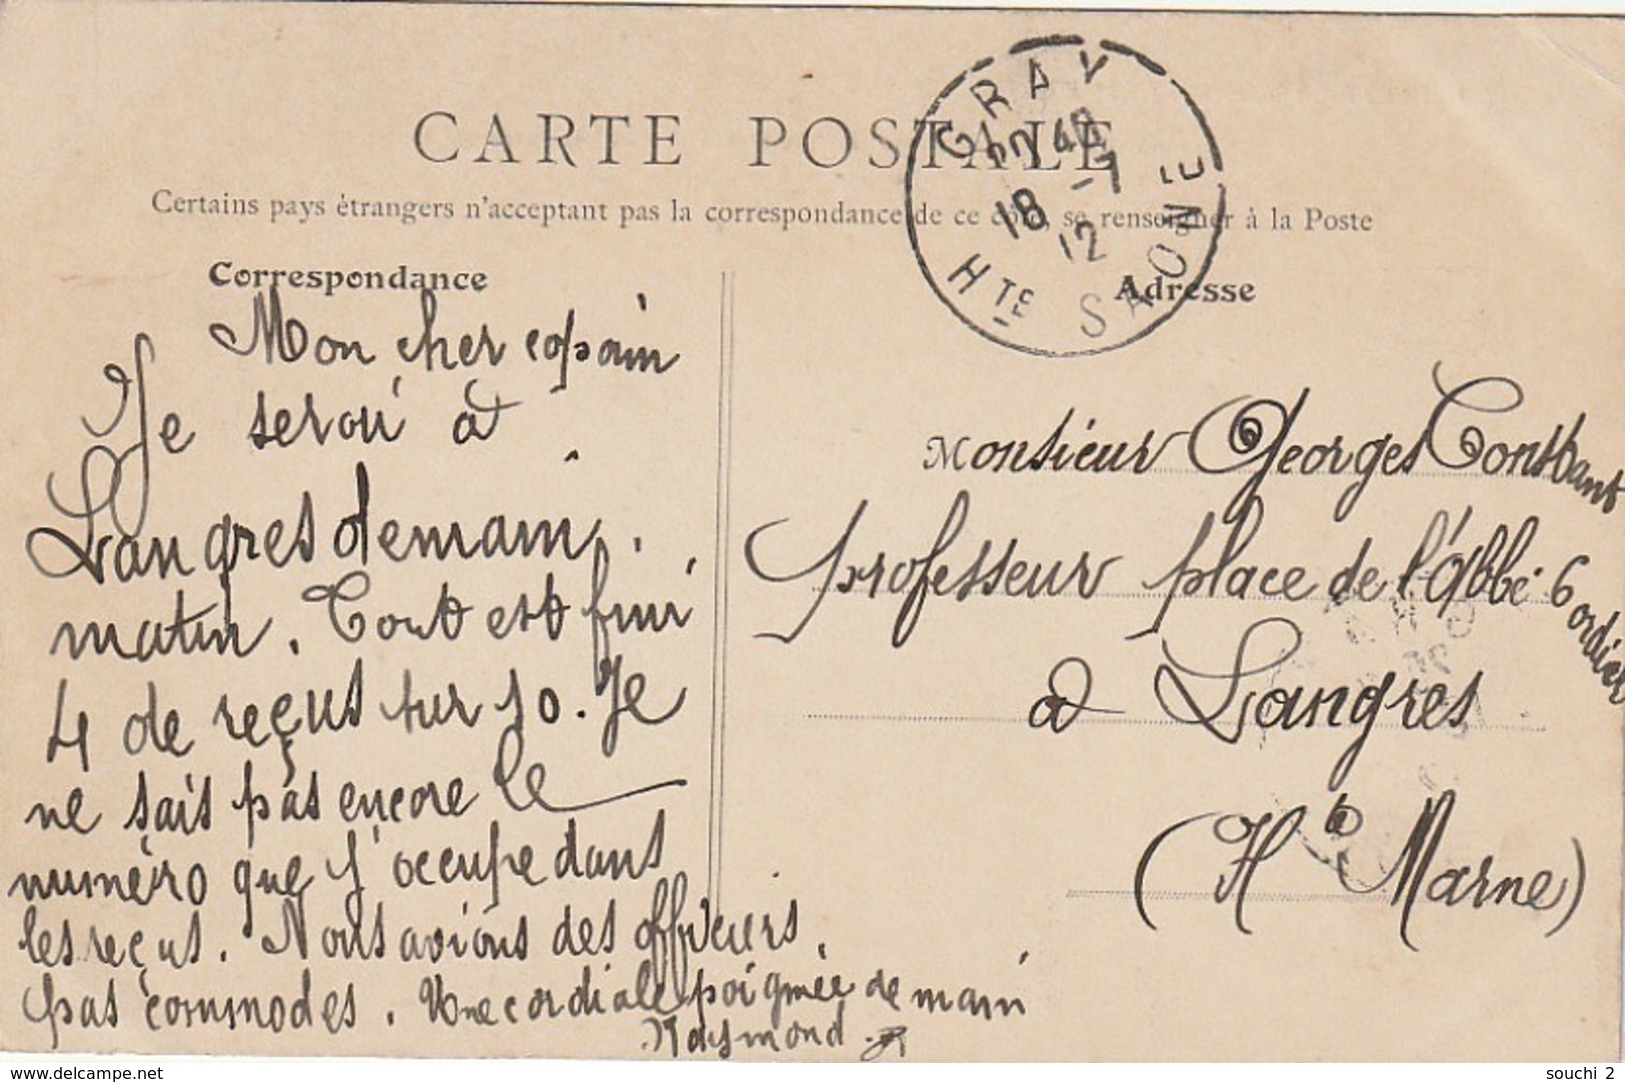 CARTE POSTALE
Certains pays étrangers n'acceptant pas la correspondance de ce côté, se renseigner à la Poste
GRAY
18 -7
12
Hte SAONE
Correspondance
Mon cher copain
Je serai à
Langres demain
matin. Tout est fini
4 de reçus sur 10. Je
ne sais pas encore le
numéro que j'occupe dans
les reçus. Nous avions des officiers
pas commodes. Une cordiale poignée de main
Raymond
Adresse
Monsieur Georges Constant
professeur place de l'Abbé Cordier
à Langres
(Hte Marne)
www.delcampe.net
souchi_2